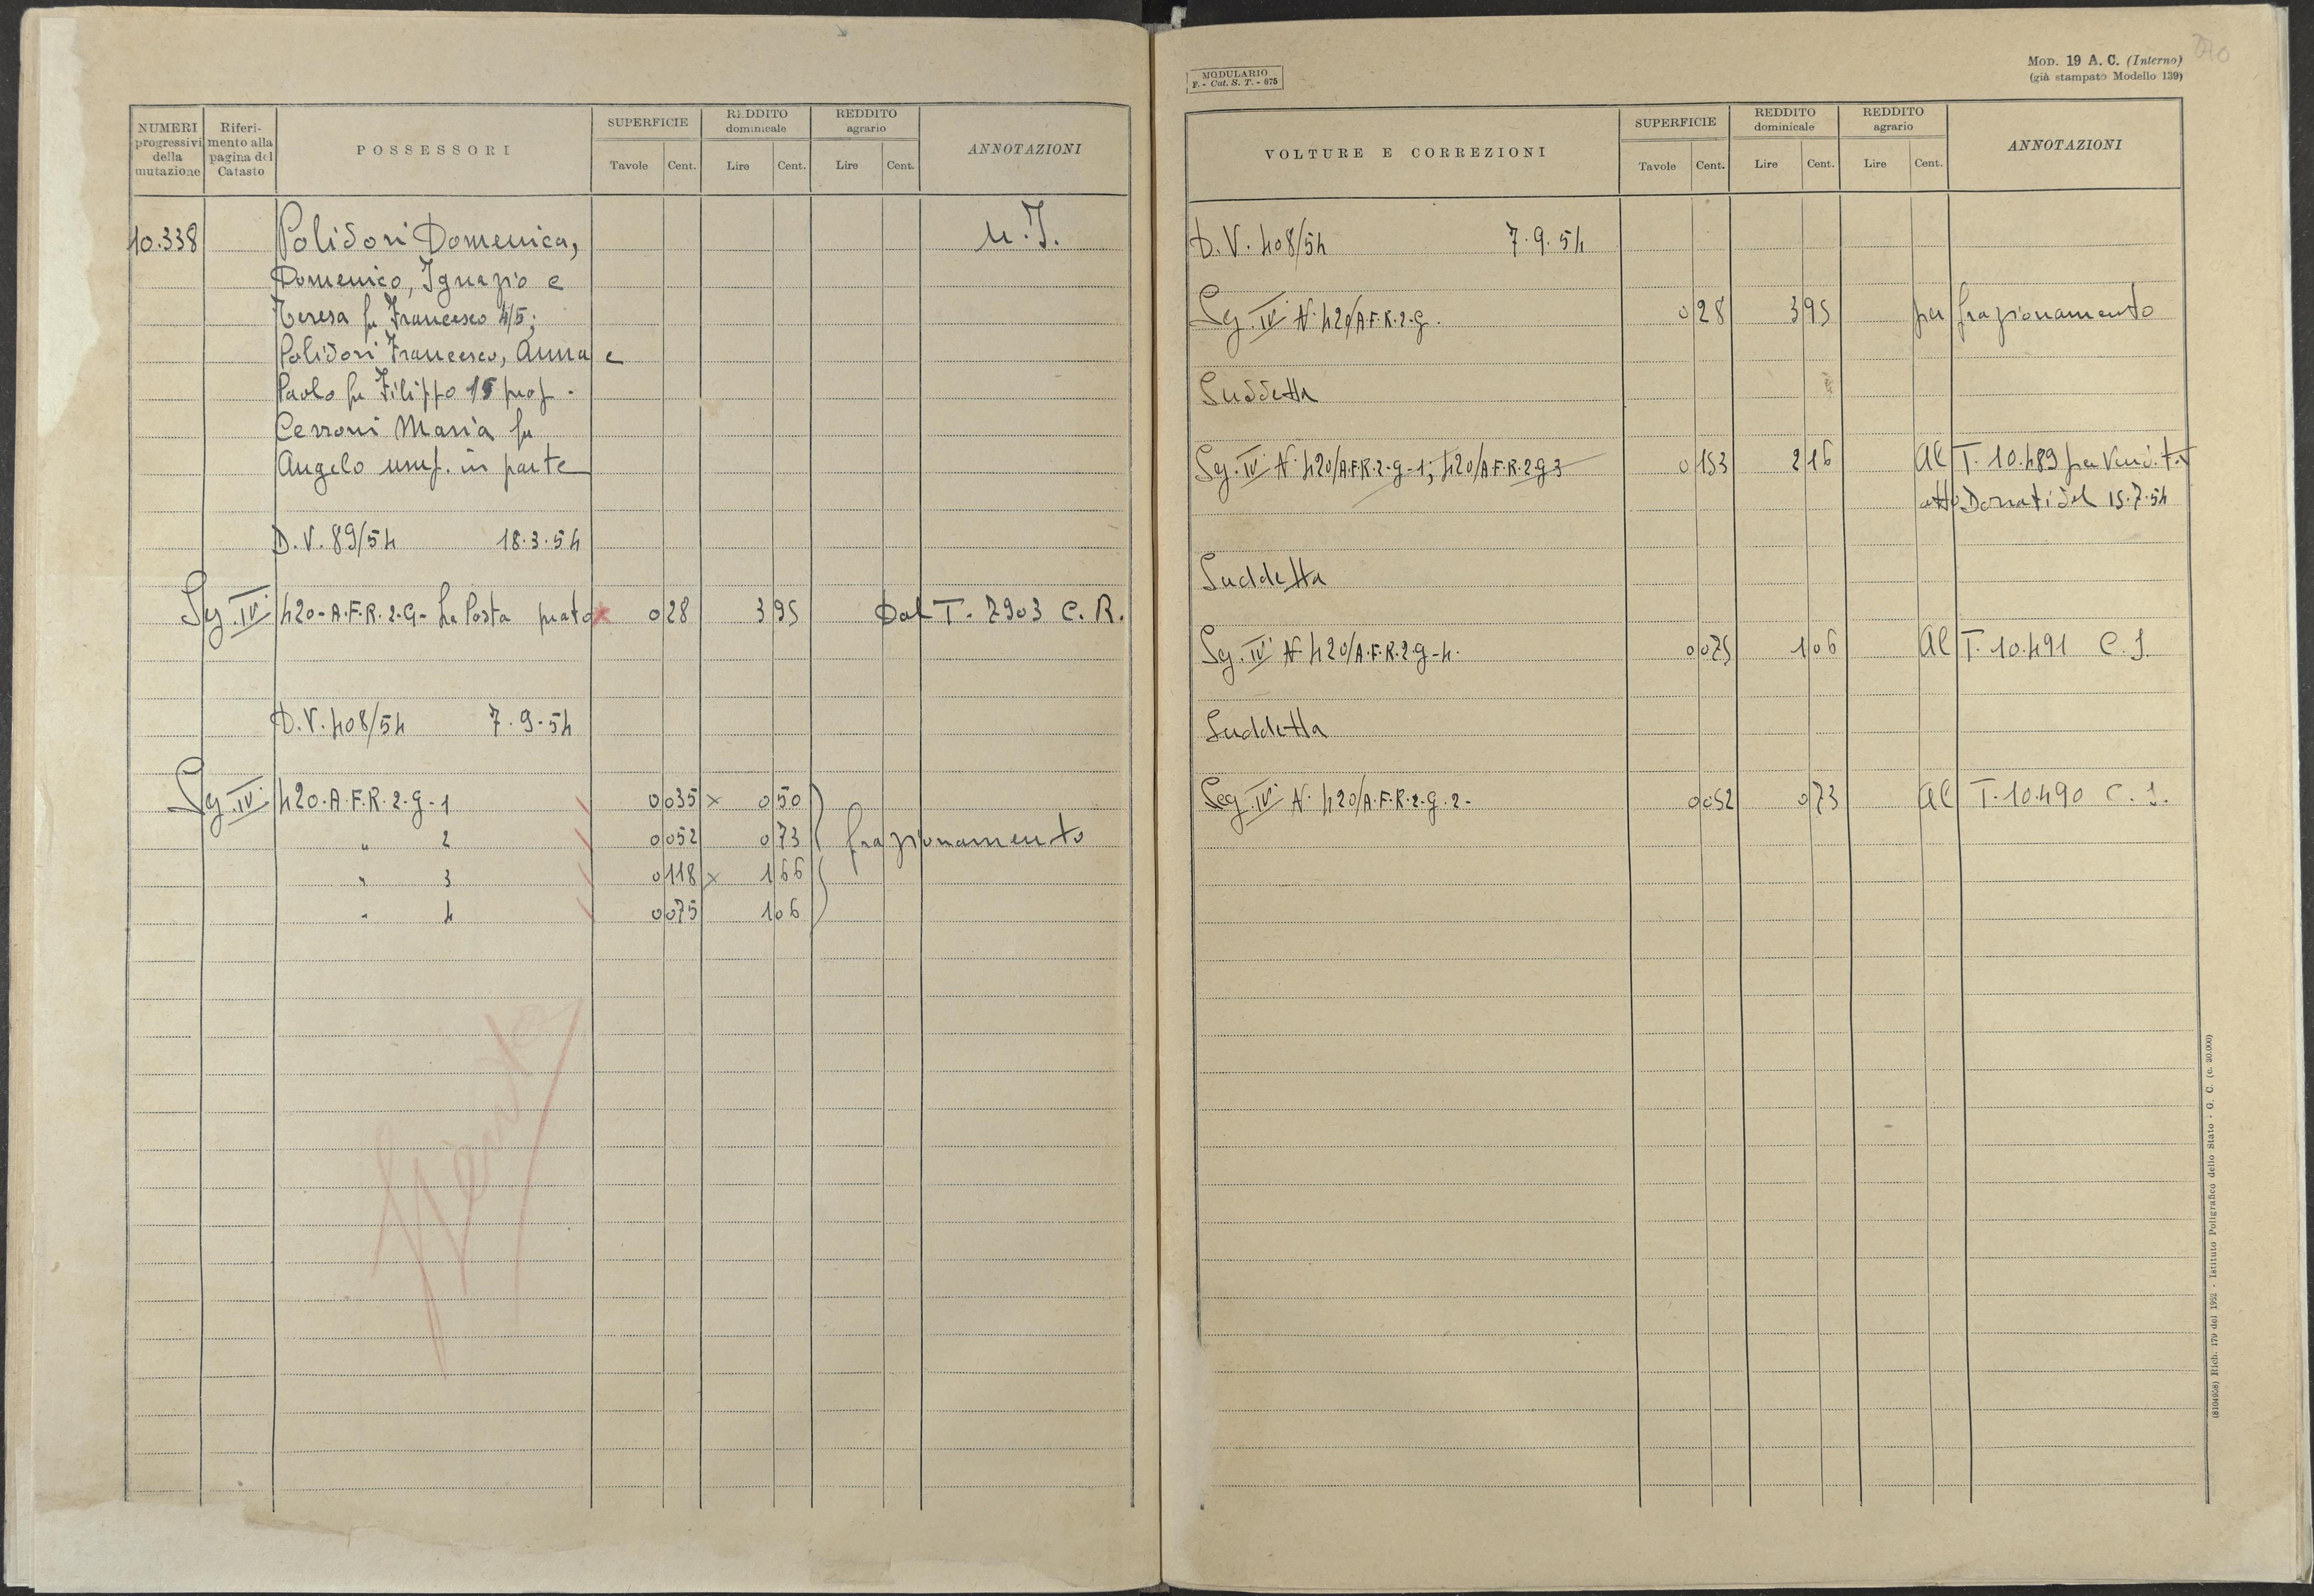 NUMERI progressivi della mutazione | Riferimento alla pagina del Catasto | POSSESSORI | SUPERFICIE Tavole Cent. | REDDITO dominicale Lire Cent. | REDDITO agrario Lire Cent. | ANNOTAZIONI
10.338 Polidori Domenica,
Domenico, Ignazio e
Teresa fu Francesco 4/5;
Polidori Francesco, Anna e
Paolo fu Filippo 1/5 prop.
Cerroni Maria fu
Angelo usuf. in parte
D.V. 89/54 18.3.54
Sez. IV 420-A.F.R.2-G- La Posta prato x 0 28 3 95 Dal T. 7903 C.R.
D.V. 408/54 7.9.54
Sez. IV 420-A.F.R.2-g-1 0 035 x 0 50
" 2 0 052 0 73 frazionamento
" 3 0 118 x 1 66
" 4 0 075 1 06
Spenta
MODULARIO
F. - Cat. S. T. - 675
MOD. 19 A. C. (Interno)
(già stampato Modello 139)
VOLTURE E CORREZIONI | SUPERFICIE Tavole Cent. | REDDITO dominicale Lire Cent. | REDDITO agrario Lire Cent. | ANNOTAZIONI
D.V. 408/54 7.9.54
Sez. IV N. 420/A.F.R.2-g. 0 28 3 95 per frazionamento
Suddetta
Sez. IV N. 420/A.F.R.2-g-1; 420/A.F.R.2g3 0 153 2 16 Al T. 10.489 per Vendita
atto Donati del 15.7.54
Suddetta
Sez. IV N. 420/A.F.R.2g-4. 0 075 1 06 Al T. 10.491 C.S.
Suddetta
Sez. IV N. 420/A.F.R.2-g.2- 0 052 0 73 Al T. 10.490 C.S.
(8104908) Rich. 179 del 1952 - Istituto Poligrafico dello Stato - G. C. (c. 30.000)